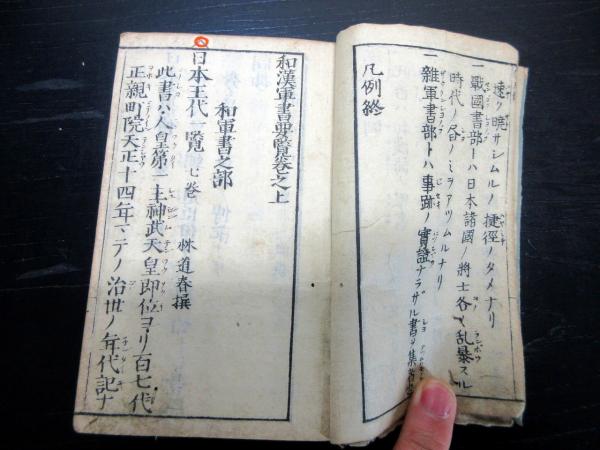 速ク暁サシムルノ捷徑ノタメナリ
一戰國書部トハ日本諸國ノ將士各〻乱暴スル
時代ノ各ノミヲアツムルナリ
一雜軍書部トハ事跡ノ實證ナラザル書ヲ集
凡例終
和漢軍書要覧巻之上
和軍書之部
日本王代一覧 七巻 林道春撰
此書ハ人皇第一主神武天皇即位ヨリ百七代
正親町院天正十四年マテノ治世ノ年代記ナ